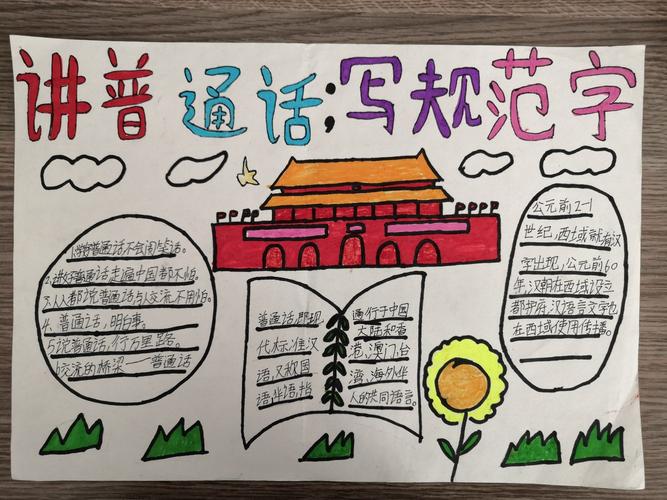 讲普通话;写规范字
1.学好普通话,不会闹笑话。
2.讲好普通话走遍中国都不怕。
3.人人都说普通话与人交流不用怕。
4、普通话,明白事。
5说普通话,行万里路。
6交流的桥梁——普通话
普通话,即现
代标准汉
语,又称国
语,华语,指
通行于中国
大陆和香
港、澳门、台
湾,海外华
人的共同语言。
公元前2-1
世纪,西域就有汉
字出现,公元前60
年,汉朝在西域设立
都护府,汉语言文字也
在西域使用传播。